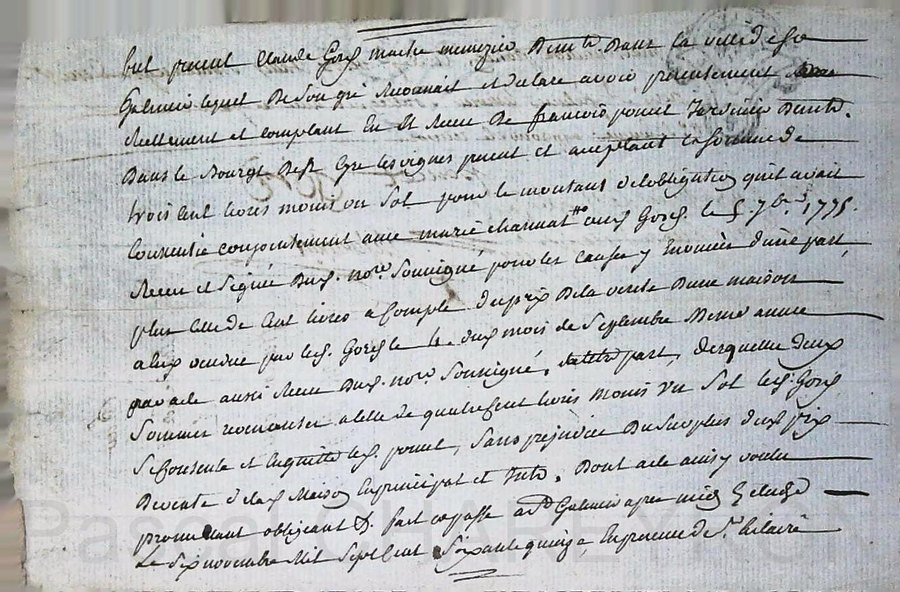 fut présent Claude Gorez maitre menuzier demt. dans la ville de St
Galmier lequel de son gré reconnait et declare avoir presentement
réellement et comptant eu et receu de françois poncet Jardinier demt.
dans le Bourg de St Cyr les vignes present et acceptant la somme de
trois cent livres moins un sol pour le montant de lobligation quil avait
Consentie conjointement avec marie charmat aud. Gorez le 5. 7bre. 1775.
Receu et signé dud. nore. soussigné pour les causes y enoncées d'une part
plus celle de cent livres a Compte du prix de la vente dune maison
a lui vendue par led. Gorez le dud. mois de Septembre meme année
par acte aussi Receu dud. nore. soussigné, dautre part, desquelles deux
sommes revenantes a celle de quatre cent livres moins un sol led. Gorez
se Contente et en quitte led. poncet, sans prejudice du surplus dud. prix
de vente de lad. Maison en principal et Intts. Dont acte ainsy voulu
promettant obligeant &. fait et passé a St. Galmier apres midy
Le dix novembre Mil Sept Cent Soixante quinze, En presence de Sr. hilaire
Pascal CHAREYRON